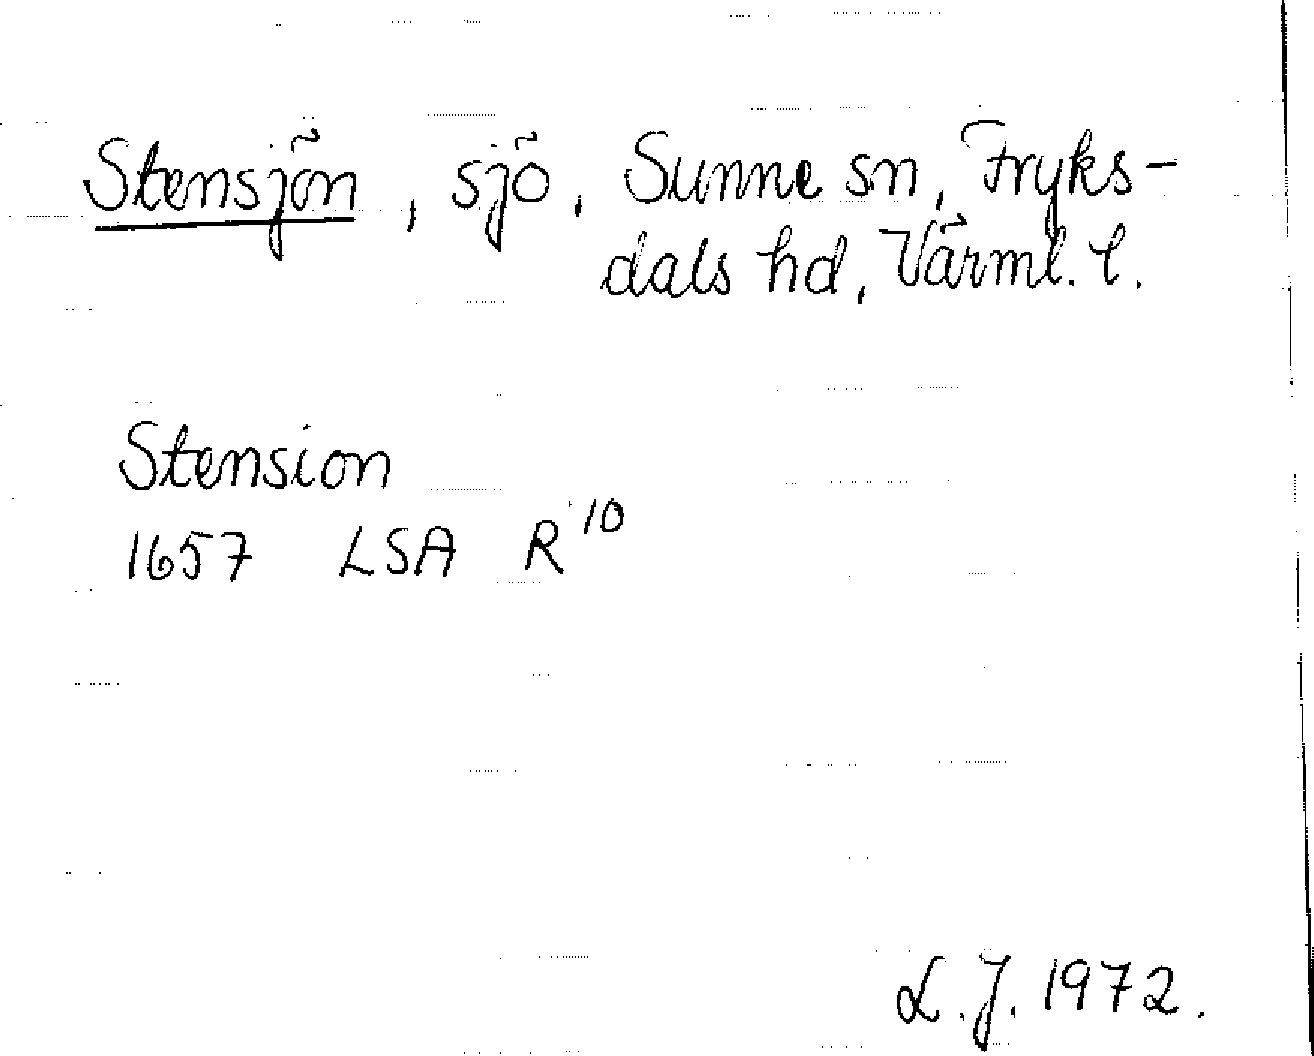 Stensjön, sjö, Sunne sn, Fryks-
dals hd, Värml. l.
Stension
1657 LSA R 10
L.J. 1972.